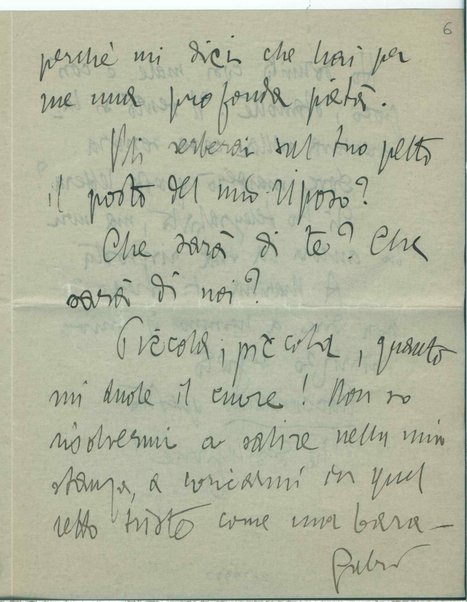 6
perchè mi dici che hai per
me una profonda pietà.
Mi serberai sul tuo petto
il posto del mio riposo?
Che sarà di te? Che
sarà di noi?
Piccola, piccola, quanto
mi duole il cuore! Non so
risolvermi a salire nella mia
stanza, a coricarmi in quel
letto tristo come una bara—
Gabri